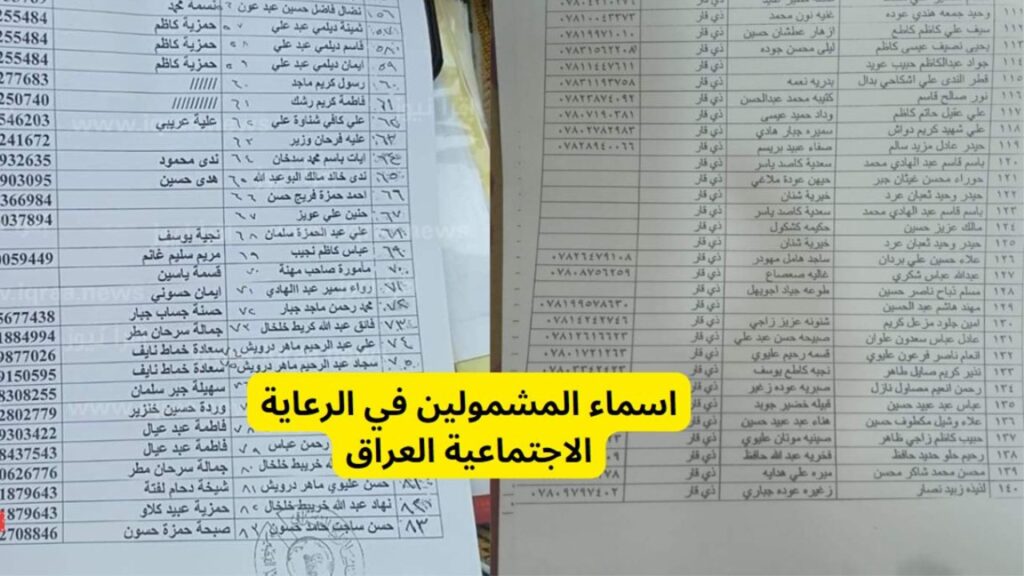 اسماء المشمولين في الرعاية
الاجتماعية العراق
١١١ وحيد جمعه هندي عوده غفيه نون محمد ذي قار ٠٧٨١٠٠٤٣٣٧٣
١١٢ سيف علي كاظم كاطع ازهار عطشان حسين ذي قار ٠٧٨١٩٩٧١٠١٠
١١٣ يحيى نصيف عيسى كاظم ليلى محسن جوده ذي قار
١١٤ جواد عبدالكاظم حبيب عويد ذي قار ٠٧٨١١٤٤٧٦١١
١١٥ قطر الندى علي اشكاحي بدال بدريه نعمه ذي قار ٠٧٨٣١١٩٣٧٥٨
١١٦ نور صالح قاسم كتيبه محمد عبدالحسن ذي قار ٠٧٨٢٣٨٧٤٠٩٢
١١٧ علي عقيل حاتم كاظم وداد حميد عيسى ذي قار ٠٧٨٠٧١٩٠٣٨١
١١٨ علي شهيد كريم دواش سميره جبار هادي ذي قار ٠٧٨٠٢٧٨٢٩٨٣
١١٩ حيدر عادل مزيد سالم صفاء عبيد بريسم ذي قار ٠٧٨٢٨٩٤٠٠٦٦
١٢٠ باسم قاسم عبد الهادي محمد سعدية كاصد ياسر ذي قار
١٢١ حوراء محسن غيثان جبر جيهن عودة ملاغي ذي قار
١٢٢ حيدر وحيد ثعبان عرد خيرية شنان ذي قار
١٢٣ باسم قاسم عبد الهادي محمد سعدية كاصد ياسر ذي قار
١٢٤ مالك عزيز حسين حكيمه كشكول ذي قار
١٢٥ حيدر وحيد ثعبان عرد خيرية شنان ذي قار
١٢٦ علاء حسين علي بردان ساجد هامل مهودر ذي قار ٠٧٨٢٦٤٧٩١٠٨
١٢٧ عبدالله عباس شكري غاليه صعصاع ذي قار ٠٧٨٠٨٧٥٦٢٥٩
١٢٨ مسلم ذباح ناصر حسين طوعه جياد اجويهل ذي قار
١٢٩ مهند هاشم عبد الحسين ذي قار ٠٧٨١٩٩٥٧٨٦٣٠
١٣٠ امين جلود مزعل كريم شنونه عزيز زاجي ذي قار ٠٧٨١٤٢٤٢٧٤٦
١٣١ عادل عباس سعدون علوان صبيحه حسن عبد علي ذي قار ٠٧٨١٢٦١٦٦٢٣
١٣٢ انعام ناصر فرعون عليوي قسمه رحيم عليوي ذي قار ٠٧٨٠١٧٢١٢٦٣
١٣٣ نذير كريم صايل طاهر نجيه كاطع يوسف ذي قار ٠٧٨٠٣٣٤٢٤٢٣
١٣٤ رحمن انعيم مصاول نازل صبريه عوده زغير ذي قار
١٣٥ عباس عبد عبيد حسين قبيله خضير جويد ذي قار
١٣٦ علاء وشيل مكطوف حسين هناء عبد عبيد حسين ذي قار
١٣٧ حبيب كاظم زاجي طاهر صينيه مونان عليوي ذي قار
١٣٨ رحيم حلو حديد حافظ فخريه عبد الله حافظ ذي قار
١٣٩ محسن محمد شاكر محسن ميره علي هدايه ذي قار
١٤٠ لذيذه زبيد نصار زغيره عوده جباري ذي قار ٠٧٨٠٩٧٩٧٤٠٢
٥٦ نضال فاضل حسين عبد عون نسمه محمد
٥٧ ثمينة ديلمي عبد علي حمزية كاظم 255484
٥٨ قاسم ديلمي عبد علي حمزية كاظم 255484
٥٩ ايمان ديلمي عبد علي حمزية كاظم 255484
٦٠ رسول كريم ماجد ////// 277683
٦١ فاطمة كريم رشك ////////// 250740
٦٢ علي كافي شناوة علي علية عريبي 546203
٦٣ عليه فرحان وزير 241672
٦٤ ايات باسم محمد سدخان ندى محمود 932635
٦٥ ندى خالد مالك البوعبد الله هدى حسين 903095
٦٦ احمد حمزة فريح حسن 366984
٦٧ حنين علي عويز 037894
٦٨ علي عبد الحمزة سلمان نجية يوسف
٦٩ عباس كاظم نجيب مريم سليم غانم 0059449
٧٠ مأمورة صاحب مهنة قسمة ياسين
٧١ رواء سمير عبد االهادي ايمان حسوني
٧٢ محمد رحمن ماجد جبار حسنة جساب جبار 5677438
٧٣ فائق عبد الله كريط خلخال جمالة سرحان مطر 1884994
٧٤ علي عبد الرحيم ماهر درويش سعادة خماط نايف 9877026
٧٥ سجاد عبد الرحيم ماهر درويش سعادة خماط نايف 9150595
سهيلة جبر سلمان 8308255
وردة حسين خنزير 2802779
فاطمة عبد عيال 9303422
رحمن عباس فاطمة عبد عيال 8437543
عبد الله خريبط خلخال جمالة سرحان مطر 0626776
٨١ حسن عليوي ماهر درويش شيخة دحام لفتة 1879643
٨٢ نهاد عبد الله خريبط خلخال حمزية عبيد كلاو 1879643
٨٣ حسن ساجت حامد حسون صبحة حمزة حسون 2708846
www.iqraa.news